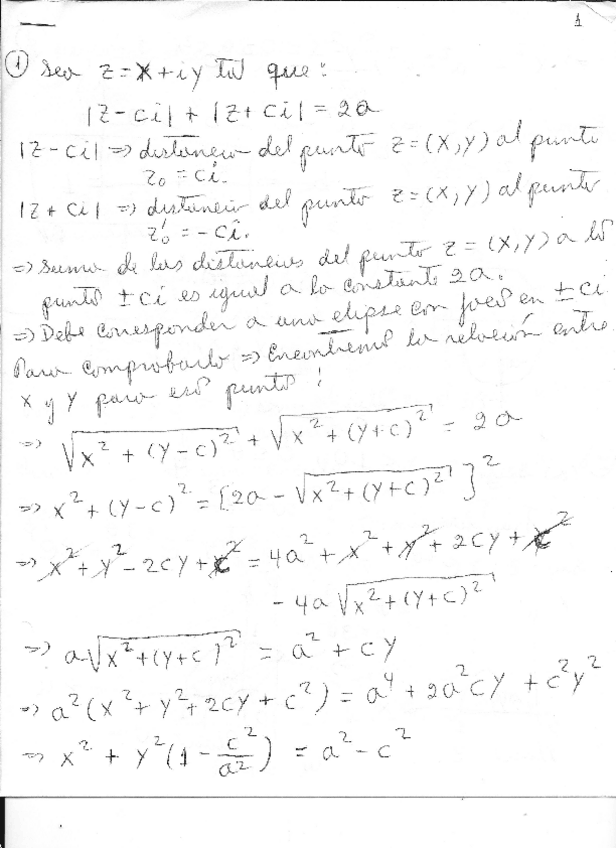 1
① Sea z = x + iy tal que:
|z - ci| + |z + ci| = 2a
|z - ci| => distancia del punto z = (x, y) al punto
z₀ = ci.
|z + ci| => distancia del punto z = (x, y) al punto
z₀' = -ci.
=> Suma de las distancias del punto z = (x, y) a los
puntos ± ci es igual a la constante 2a.
=> Debe corresponder a una elipse con focos en ± ci
Para comprobarlo => Encontremos la relación entre
x y y para esos puntos:
=> √(x² + (y - c)²) + √(x² + (y + c)²) = 2a
=> x² + (y - c)² = [2a - √(x² + (y + c)²)]²
=> x² + y² - 2cy + c² = 4a² + x² + y² + 2cy + c²
- 4a √(x² + (y + c)²)
=> a√(x² + (y + c)²) = a² + cy
=> a²(x² + y² + 2cy + c²) = a⁴ + 2a²cy + c²y²
=> x² + y²(1 - c²/a²) = a² - c²